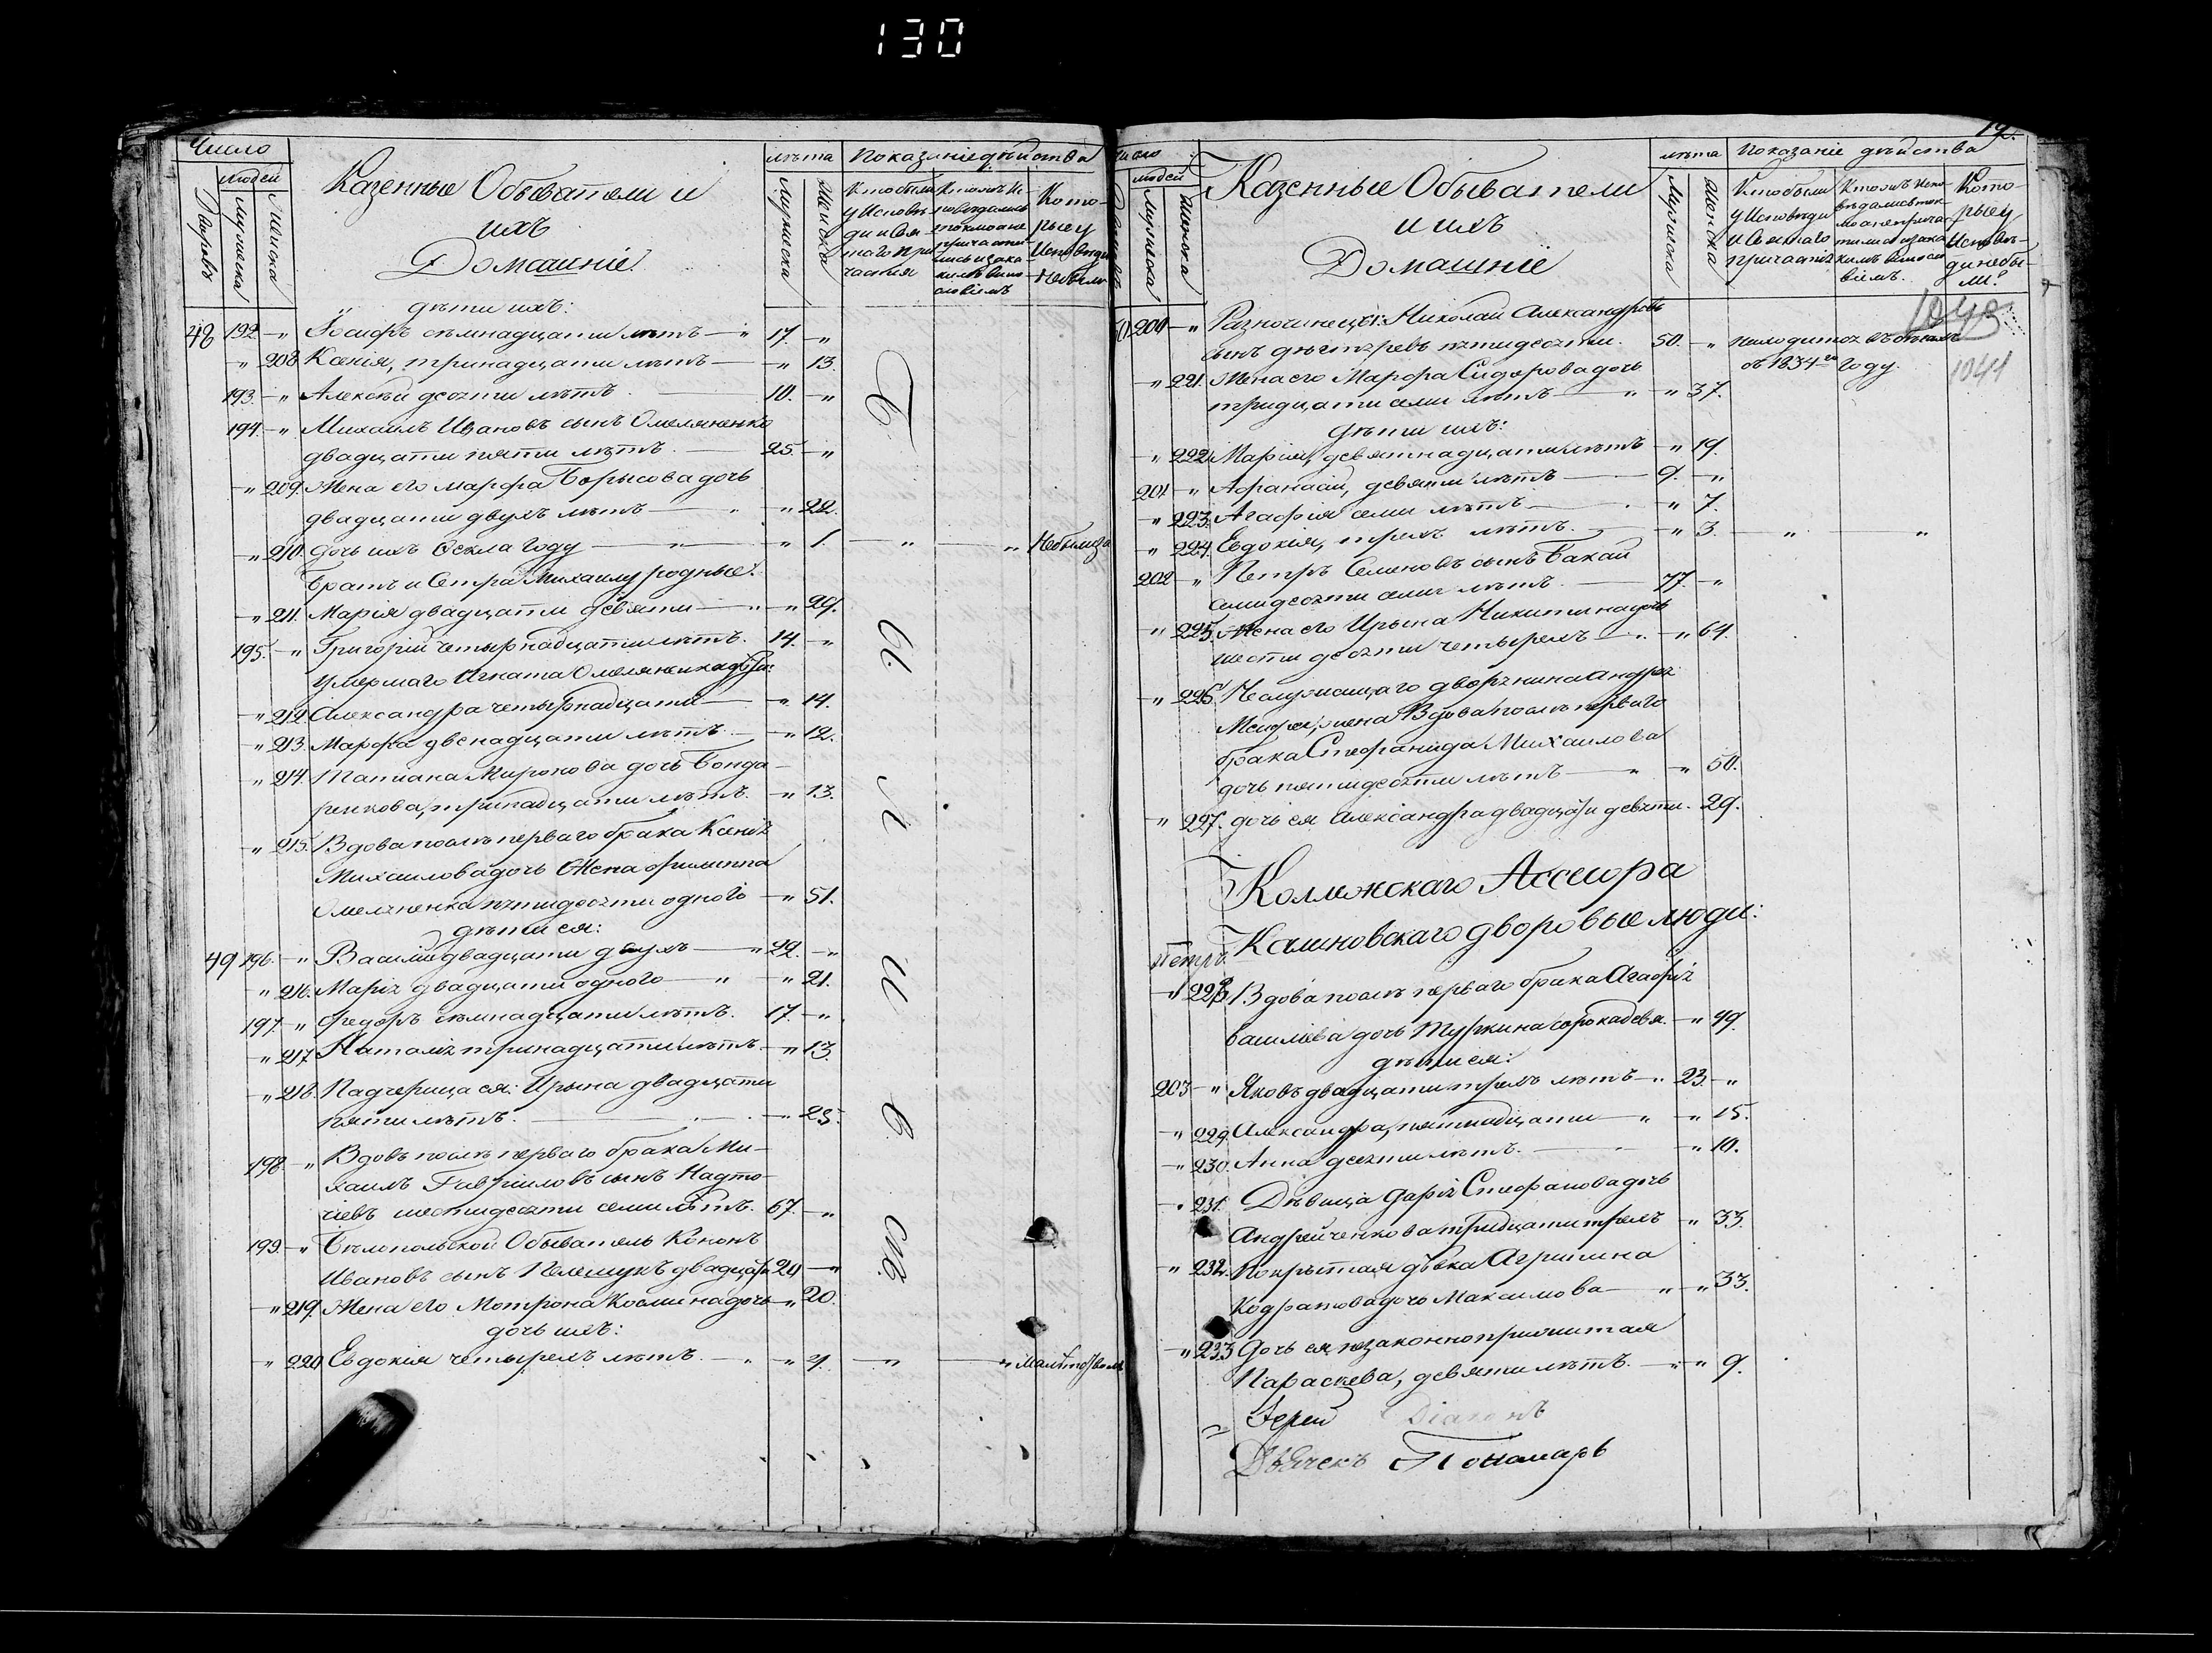 130
Число
людей
Дворовъ
Мужеска
Женска
Казенные Обыватели и
ихъ
Домашніе.
лѣта
Мужеска
Женска
Показаніе дѣйства
Кто были
у Исповѣ
ди и Свя
таго При
частія
Кото
рые у
Исповѣди
Небыли
дѣти ихъ:
48 192 -„ Іосифъ сѣмнадцати лѣтъ -„ 17. -„
„ 208 Ксенія, тринадцати лѣтъ -„ 13.
193. -„ Алексѣй десяти лѣтъ. 10. -„
194. -„ Михаилъ Ивановъ сынъ Омеляненко
двадцати пяти лѣтъ. 25. -„
-„ 209. Жена его Марфа Борысова дочь
двадцати двухъ лѣтъ -„ 22.
-„ 210. дочь ихъ Ѳекла году -„ 1. -„ -„
Братъ и Сетра Михаилу родные:
-„ 211. Марія двадцати девяти -„ 29.
195. -„ Григорій четырнадцати лѣтъ. 14. -„
умершаго Игната Омеляненка
-„ 212 Александра четырнадцати -„ 14.
-„ 213. Марфа двенадцати лѣтъ. -„ 12.
„ 214. Татиана Миронова дочь Бонда-
ренкова, тринадцати лѣтъ. -„ 13.
„ 215. Вдова послѣ перваго брака Ксенія
Михаилова дочь Жена Филиппа
Омеляненка пятидесяти одного -„ 51.
дѣти ея:
49 196. -„ Василій двадцати двухъ -„ 22. -„
„ 216. Марія двадцати одного -„ „ 21.
197. -„ Федоръ сѣмнадцати лѣтъ. 17. -„
„ 217 Наталія тринадцати лѣтъ -„ 13.
-„ 218. Падчерица ея: Ирына двадцати
пяти лѣтъ. -„ 25.
198 -„ Вдовъ послѣ перваго брака Ми-
хаилъ Гавріиловъ сынъ Надто-
чіевъ шестидесяти семи лѣтъ. 67. -„
199. -„ Бѣлопольской Обыватель Кононъ
Ивановъ сынъ Пелешукъ 20 -„
-„ 219. Жена его Мотрона Космина дочь -„ 20.
дочь ихъ:
„ 220 Евдокія четырехъ лѣтъ. -„ 4. -„ -„
Б
Ы
Л
И
В
СІѢ
19.
Число
людей
Мужеска
Женска
Казенные Обыватели
и ихъ
Домашніе
лѣта
Мужеска
Женска
Показаніе дѣйства
Кто были
у Исповѣди
и Святаго
причастія
Кото-
рые у
Исповѣ-
ди небы-
ли?
200 -„ Разночинецъ: Николай Александровъ
сынъ пятидесяти. 50. -„
съ 1834го году.
1041
-„ 221. Жена его Марфа Сидорова дочь
тридцати семи лѣтъ -„ „ 37.
дѣти ихъ:
-„ 222 Марія, девятнадцати лѣтъ -„ 19.
201 -„ Афанасій, девяти лѣтъ 9. -„
-„ 223. Агафія семи лѣтъ -„ 7.
-„ 224. Евдокія, трехъ лѣтъ. -„ 3. „ „
202 -„ Петръ Семеновъ сынъ Бакай
семидесяти семи лѣтъ. 77. -„
„ 225. Жена его Ирына Никитина дочь
шестидесяти четырехъ -„ 64.
-„ 226 дворянина Андрея
жена Вдова послѣ перваго
брака Стефанида Михаилова
дочь пятидесяти лѣтъ -„ 50.
„ 227. дочь ея Александра двадцати девяти. 29.
Коллежскаго Ассесора
Калиновскаго дворовые люди:
Петръ.
-„ 228. Вдова послѣ перваго брака Агафія
Василіева дочь Туркина сорокадевя. -„ 49.
дѣти ея:
203 -„ Яковъ двадцати трехъ лѣтъ -„ 23. -„
-„ 229. Александра, пятнадцати -„ „ 15.
-„ 230. Анна десяти лѣтъ. -„ 10.
-„ 231. Дѣвица Дарія Стефанова дочь
Андрейченкова тридцати трехъ -„ 33.
-„ 232. Покрытая дѣвка Агрипина
Кодратова дочь Максимова -„ 33.
-„ 233 Дочь ея незаконноприжитая
Параскева, девяти лѣтъ. -„ 9.
Іерей Діаконъ
Дьячекъ Пономарь